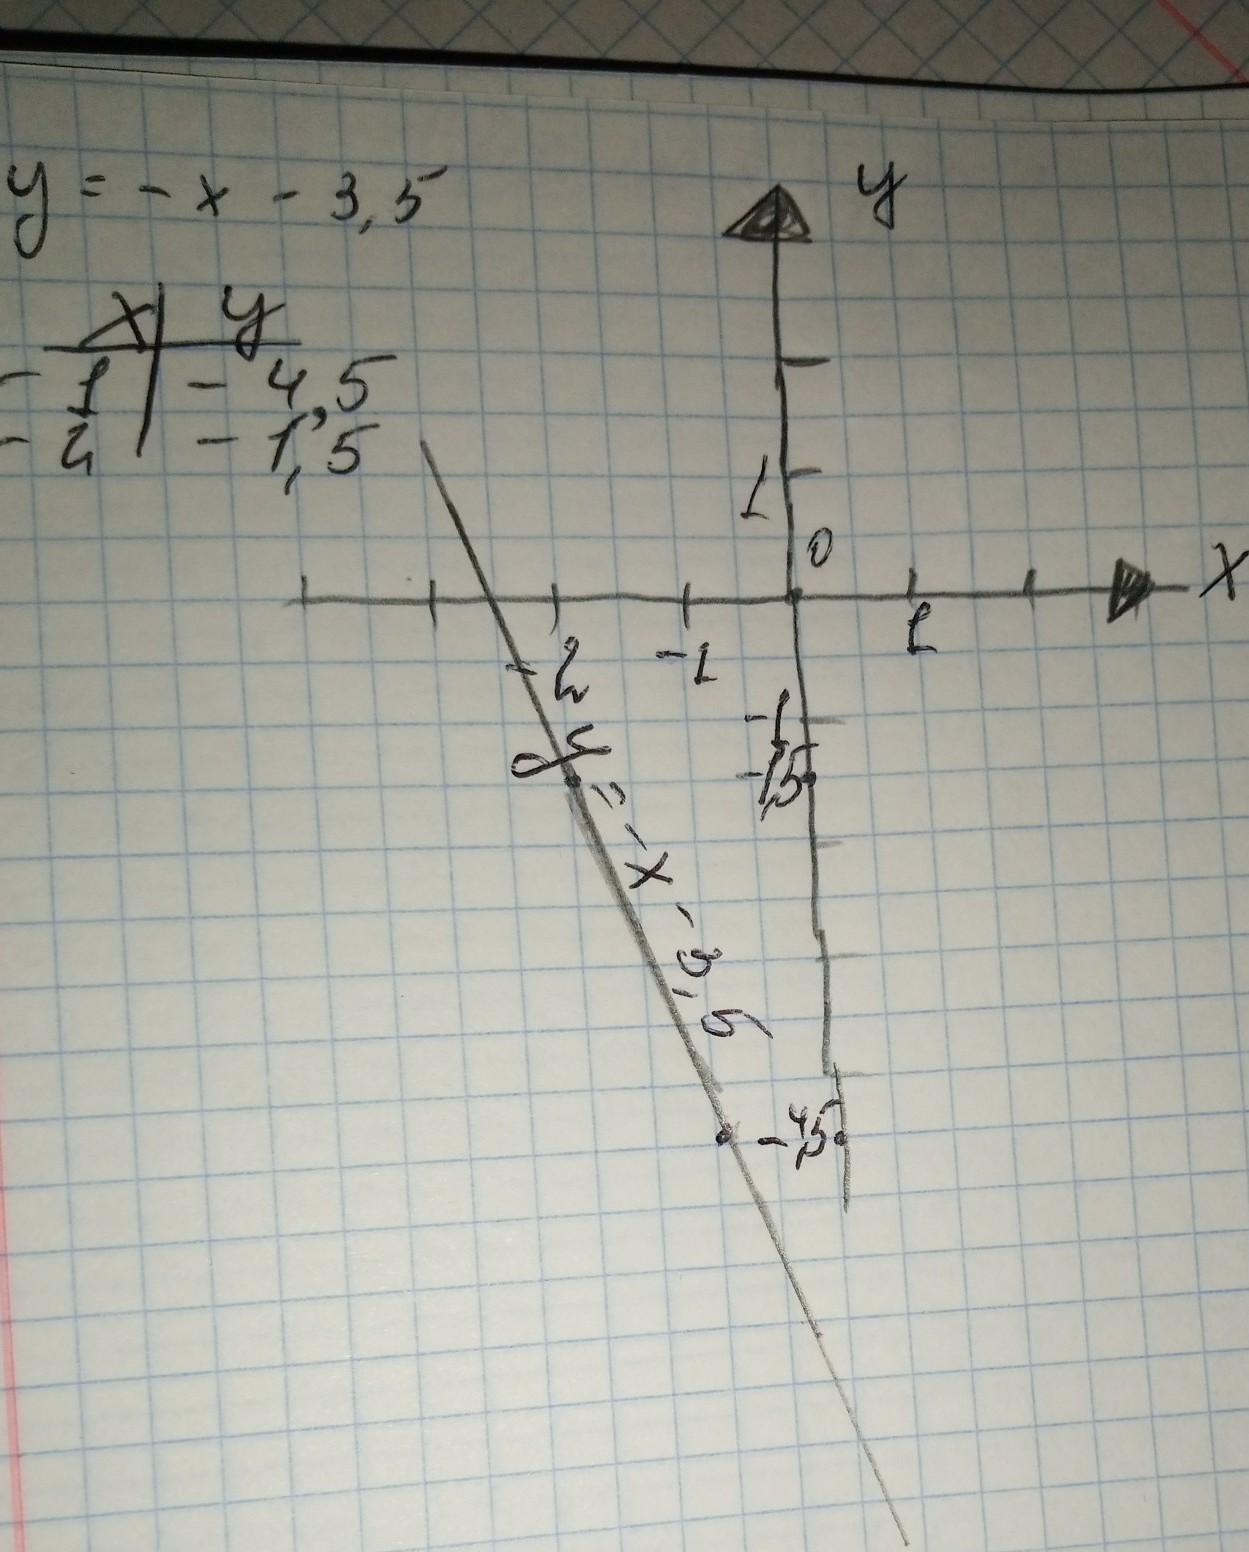 y = - x - 3,5
x | y
- 1 | - 4,5
- 2 | - 1,5
y
1
0
x
-2
-1
1
-1
-1,5
y = - x - 3,5
-4,5